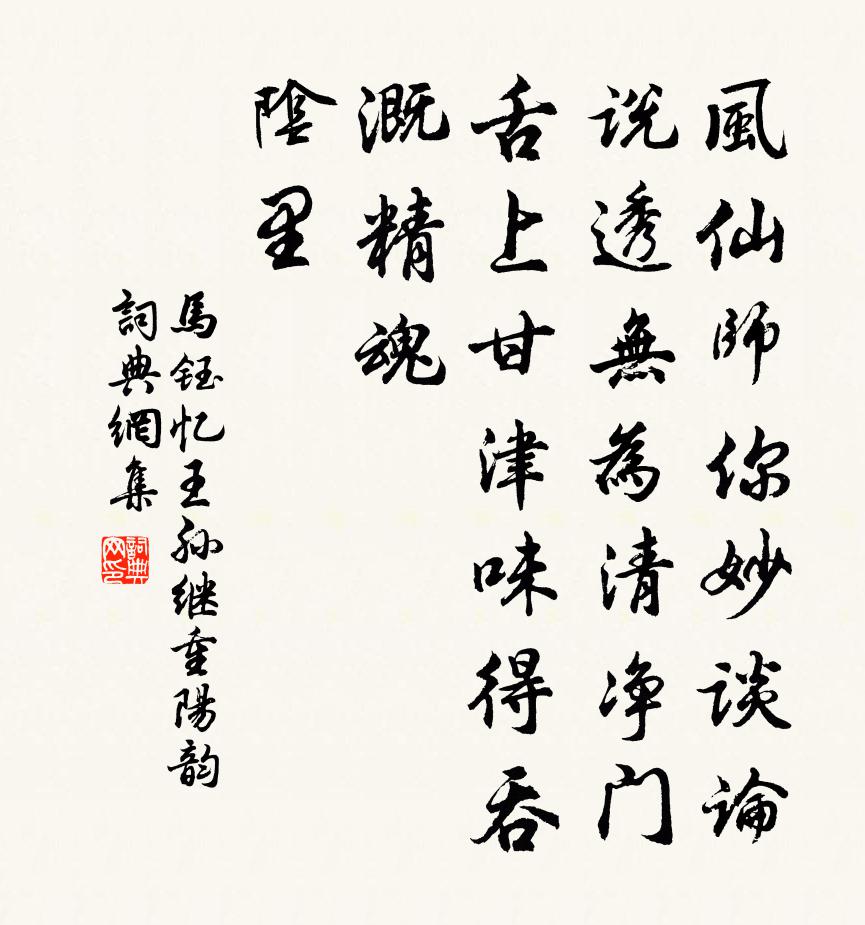 風仙師你妙談論
说透無為清净门
舌上甘津味得吞
溉精魂
陰里
馬鈺忆王孙继重陽韵
詞典網集
詞典网印